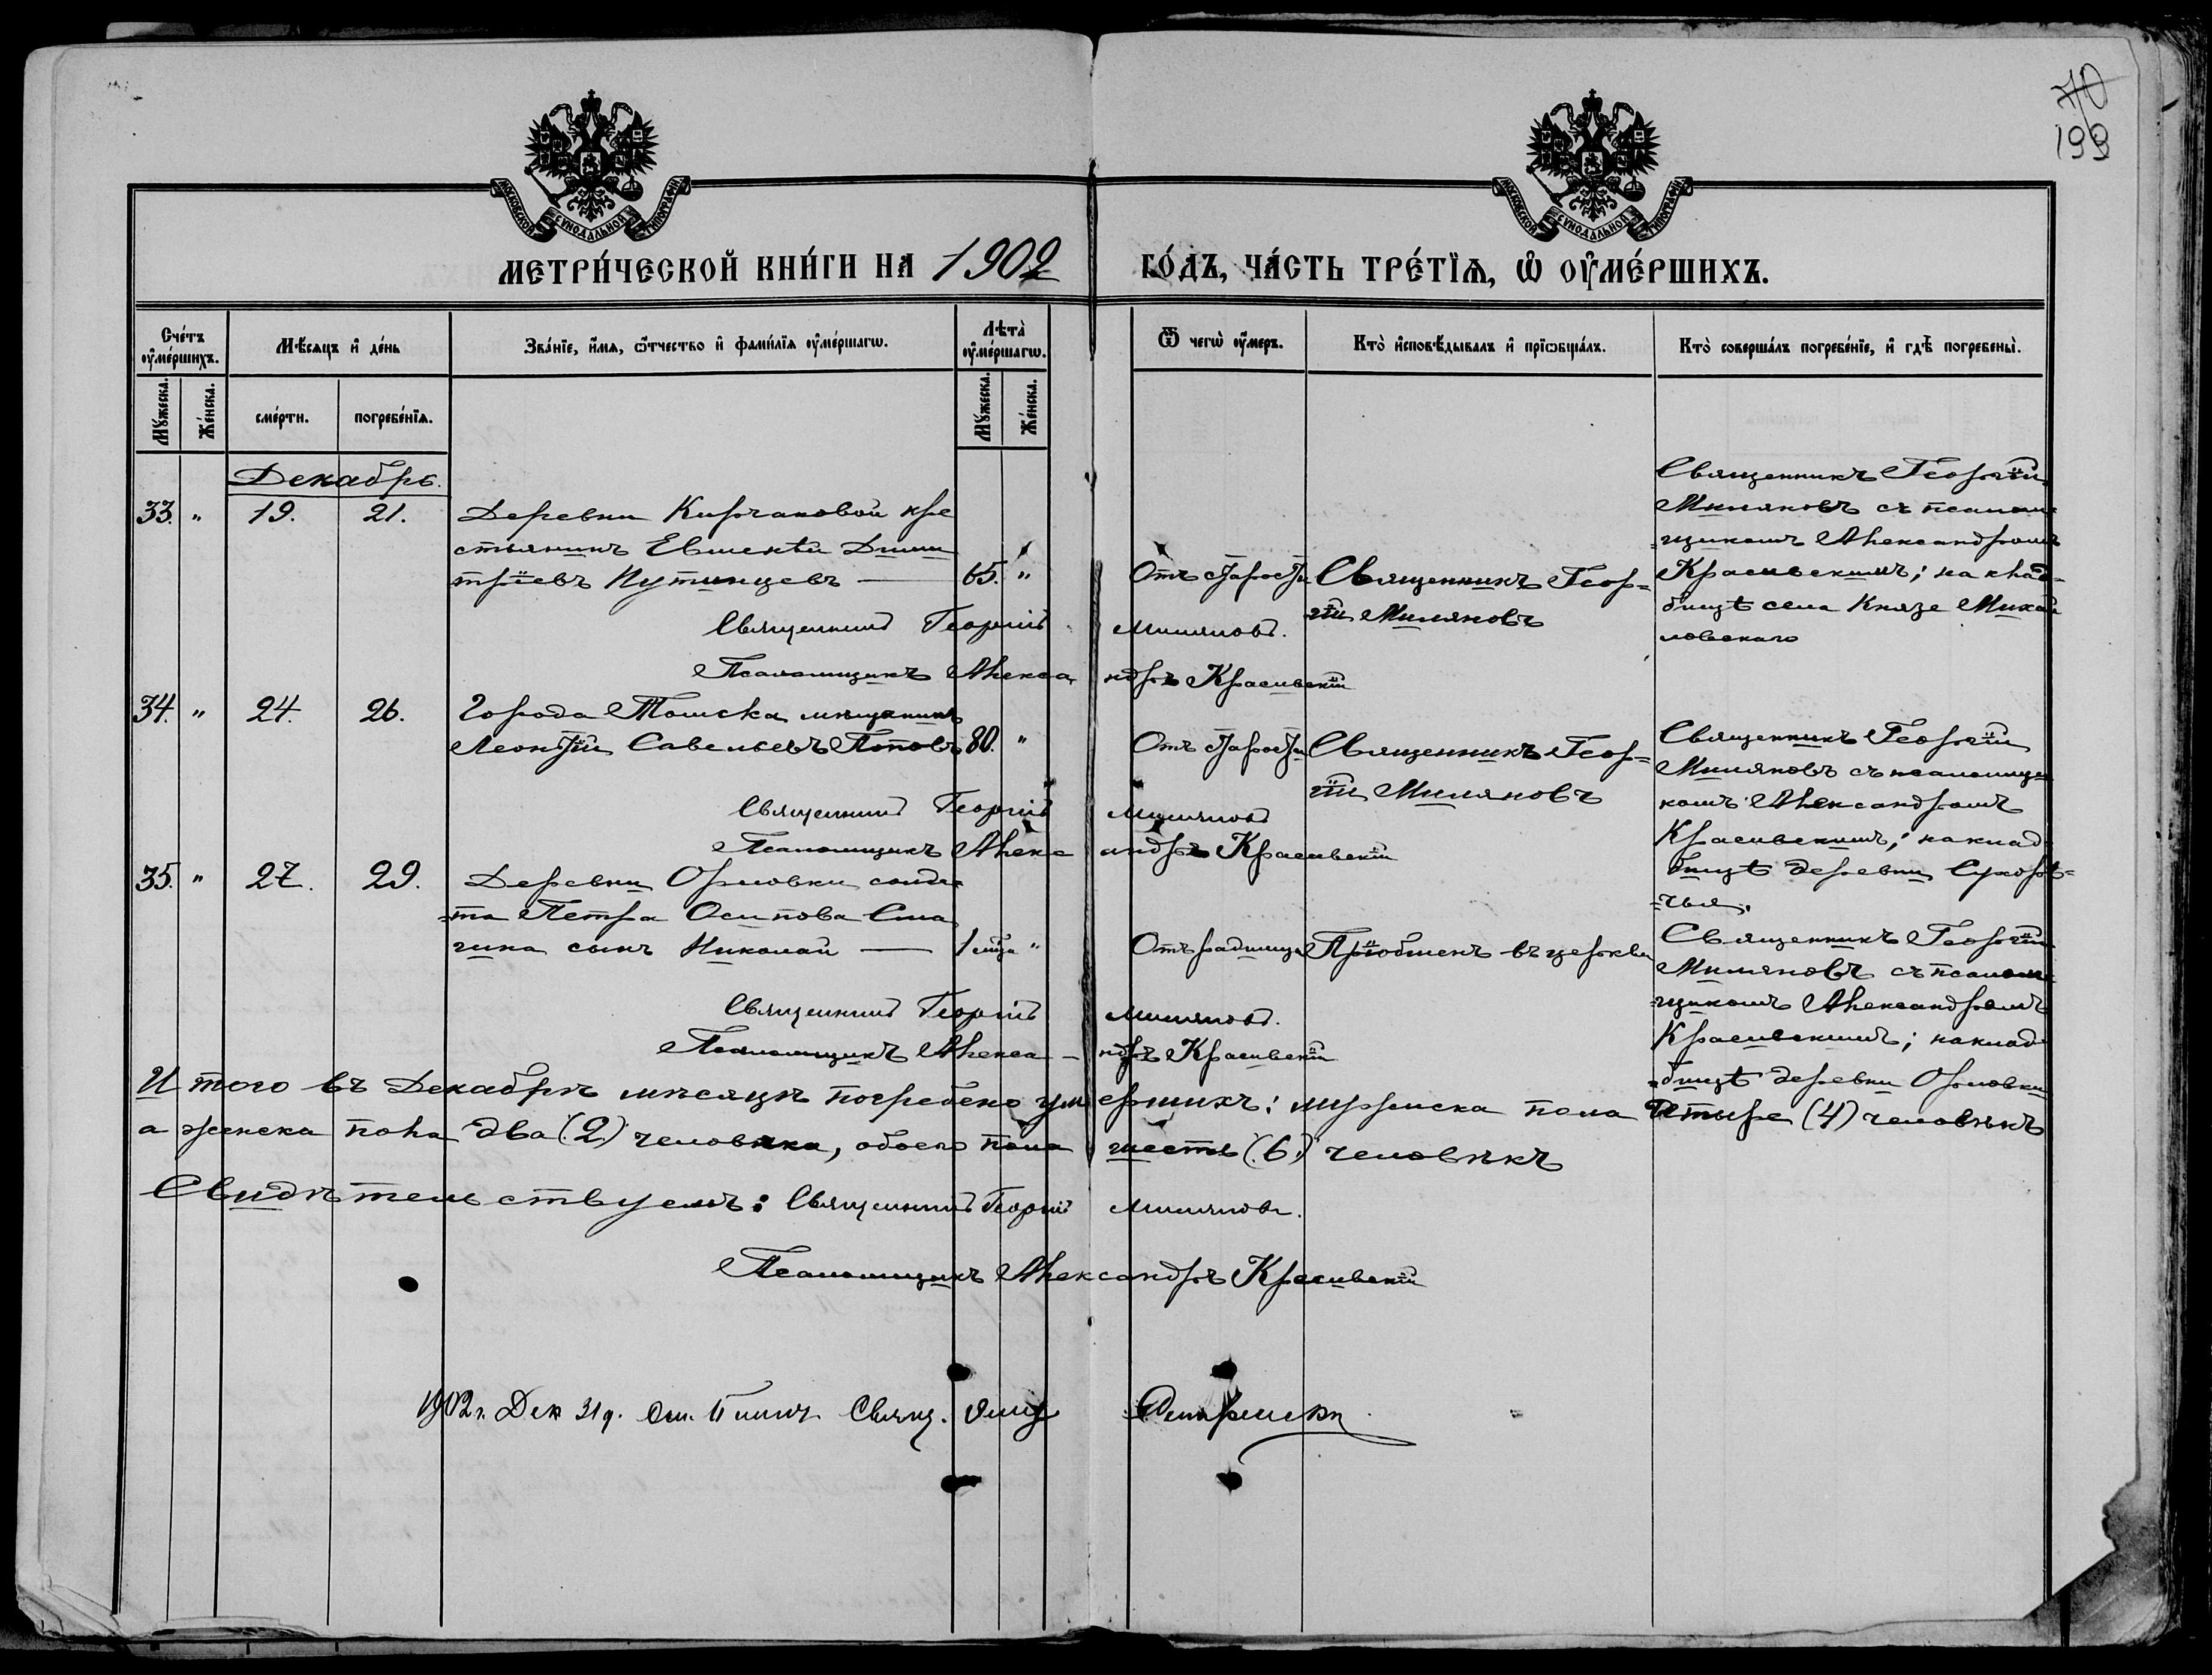 70
199
МОСКОВСКОЙ СУНОДАЛЬНОЙ ТИПОГРАФІИ
МОСКОВСКОЙ СУНОДАЛЬНОЙ ТИПОГРАФІИ
МЕТРИ́ЧЕСКОЙ КНИ́ГИ НА 1902 ГО́ДЪ, ЧА́СТЬ ТРЕ́ТІѦ, Ѡ ОУМЕ́РШИХЪ.
Сче́тъ оумершихъ.
Мѣсяцъ и де́нь
Зва́ніе, и́мя, ѻтчество и фами́лія оумершагѡ.
Лѣта оумершагѡ.
Ѿ чегѡ оумеръ.
Кто̀ исповѣдывалъ и пріѡбщалъ.
Кто̀ соверша́лъ погребе́ніе, и гдѣ погребены̀.
Мꙋжеска.
Же́нска.
сме́рти.
погребе́нія.
Мꙋжеска.
Же́нска.
Декабрь.
33. " 19. 21. Деревни Кирчановой кре
стьянинъ Евменій Дими
тріевъ Путинцевъ — 65. "
Отъ старости
Священникъ Геор=
гій Миляновъ
Священникъ Георгій
Миляновъ съ псалом=
=щикомъ Александромъ
Красивскимъ; на клад=
бищѣ села Князе Михай
ловскаго
Священникъ Георгій Миляновъ.
Псаломщикъ Александръ Красивскій
34. " 24. 26. Города Томска мѣщанинъ
Леонтій Савельевъ Поповъ 80. "
Отъ старости
Священникъ Геор=
гій Миляновъ
Священникъ Георгій
Миляновъ съ псаломщи
комъ Александромъ
Красивскимъ; на клад
бищѣ деревни Сухорѣ=
=чья.
Священникъ Георгій Миляновъ
Псаломщикъ Александръ Красивскій
35. " 27. 29. Деревни Орловки солда
=та Петра Осипова
сынъ Николай — 1 мѣс "
Отъ родимца
Пріобщенъ въ церкви
Священникъ Георгій
Миляновъ съ псалом=
=щикомъ Александромъ
Красивскимъ; на клад
=бищѣ деревни Орловки
Священникъ Георгій Миляновъ.
Псаломщикъ Александръ Красивскій
Итого въ Декабрѣ мѣсяцѣ погребено умершихъ: мужеска пола четыре (4) человѣкъ
а женска пола два (2) человѣка, обоего пола шесть (6) человѣкъ
Свидѣтельствуемъ: Священникъ Георгій Миляновъ.
Псаломщикъ Александръ Красивскій
1902 г. Дек 31 д. Свящ.